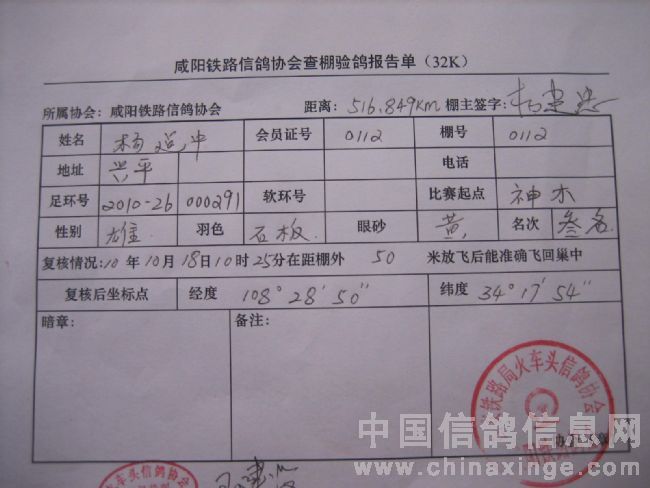 咸阳铁路信鸽协会查棚验鸽报告单（32K）
所属协会：咸阳铁路信鸽协会 距离：516.849KM 棚主签字：
姓名 杨 中 会员证号 0112 棚号 0112
地址 兴平 电话
足环号 2010-26 000291 软环号 比赛起点 神木
性别 雄 羽色 石板 眼砂 黄 名次 叁名
复核情况：10 年 10 月 18 日 10 时 25 分在距棚外 50 米放飞后能准确飞回巢中
复核后坐标点 经度 108° 28′ 50″ 纬度 34° 17′ 54″
暗章： 备注：
铁路局火车头信鸽协会
中国信鸽信息网
www.chinaxinge.com
车头信鸽协会